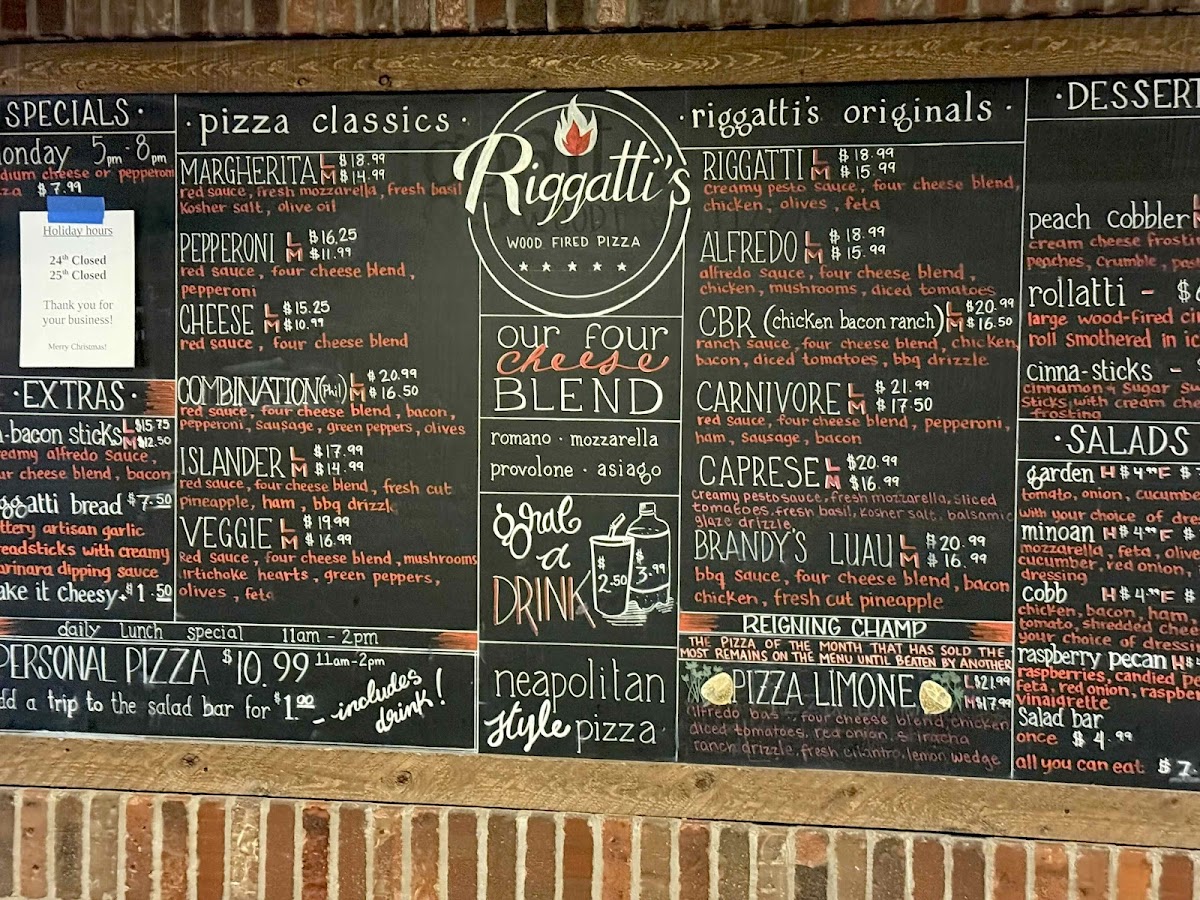 SPECIALS ·
onday 5pm-8pm
dium cheese or pepperoni
zza $7.99
Holiday hours
24th Closed
25th Closed
Thank you for
your business!
Merry Christmas!
· EXTRAS ·
-bacon sticks L $15.75
M $12.50
reamy alfredo sauce,
ur cheese blend, bacon
ggatti bread $7.50
ttery artisan garlic
readsticks with creamy
arinara dipping sauce
ake it cheesy + $1.50
· pizza classics ·
MARGHERITA L $18.99
M $14.99
red sauce, fresh mozzarella, fresh basil
Kosher salt, olive oil
PEPPERONI L $16.25
M $11.99
red sauce, four cheese blend,
pepperoni
CHEESE L $15.25
M $10.99
red sauce, four cheese blend
COMBINATION (Phil) L $20.99
M $16.50
red sauce, four cheese blend, bacon,
pepperoni, sausage, green peppers, olives
ISLANDER L $17.99
M $14.99
red sauce, four cheese blend, fresh cut
pineapple, ham, bbq drizzle
VEGGIE L $19.99
M $16.99
Red sauce, four cheese blend, mushrooms
artichoke hearts, green peppers,
olives, feta
daily lunch special 11am - 2pm
PERSONAL PIZZA $10.99 11am-2pm
dd a trip to the salad bar for $1.00 - includes
drink!
Riggatti's
WOOD FIRED PIZZA
our four
cheese
BLEND
romano · mozzarella
provolone · asiago
grab
a
DRINK
$2.50
$3.99
neapolitan
style pizza
· riggatti's originals ·
RIGGATTI L $18.99
M $15.99
Creamy pesto sauce, four cheese blend,
chicken, olives, feta
ALFREDO L $18.99
M $15.99
alfredo sauce, four cheese blend,
chicken, mushrooms, diced tomatoes
CBR (chicken bacon ranch) L $20.99
M $16.50
ranch sauce, four cheese blend, chicken,
bacon, diced tomatoes, bbq drizzle
CARNIVORE L $21.99
M $17.50
red sauce, four cheese blend, pepperoni,
ham, sausage, bacon
CAPRESE L $20.99
M $16.99
creamy pesto sauce, fresh mozzarella, sliced
tomatoes, fresh basil, kosher salt, balsamic
glaze drizzle
BRANDY'S LUAU L $20.99
M $16.99
bbq sauce, four cheese blend, bacon
chicken, fresh cut pineapple
REIGNING CHAMP
THE PIZZA OF THE MONTH THAT HAS SOLD THE
MOST REMAINS ON THE MENU UNTIL BEATEN BY ANOTHER
PIZZA LIMONE L $21.99
M $17.99
alfredo bas , four cheese blend, chicken
diced tomatoes, red onion, sriracha
ranch drizzle, fresh cilantro, lemon wedge
· DESSERT
peach cobbler
cream cheese frosti
peaches, crumble, pas
rollatti - $
large wood-fired ci
roll smothered in ic
cinna-sticks -
cinnamon + sugar
sticks with cream che
frosting
· SALADS
garden H $4.99 F $
tomato, onion, cucumbe
with your choice of dre
minoan H $4.99 F $
mozzarella, feta, olive
cucumber, red onion,
dressing
cobb H $4.99 F $
chicken, bacon, ham,
tomato, shredded chee
your choice of dressin
raspberry pecan H $
raspberries, candied pe
feta, red onion, raspbe
vinaigrette
Salad bar
once $4.99
all you can eat $7.